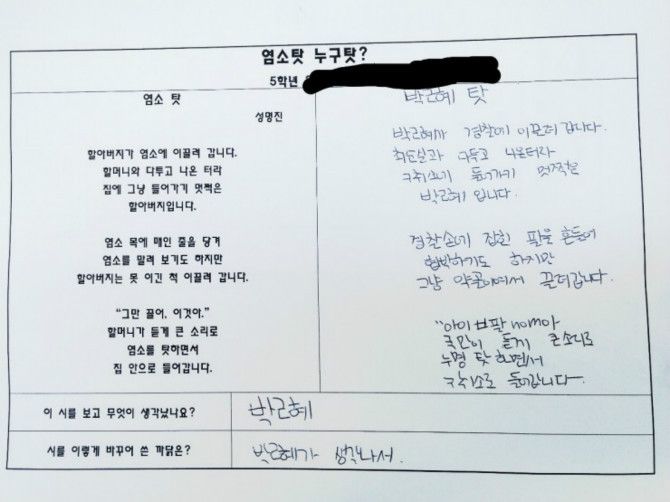 염소탓 누구탓?
5학년
염소 탓
성명진
할아버지가 염소에 이끌려 갑니다.
할머니와 다투고 나온 터라
집에 그냥 들어가기 멋쩍은
할아버지입니다.
염소 목에 매인 줄을 당겨
염소를 말려 보기도 하지만
할아버지는 못 이긴 척 이끌려 갑니다.
“그만 끌어, 이것아.”
할머니가 듣게 큰 소리로
염소를 탓하면서
집 안으로 들어갑니다.
박근혜 탓
박근혜가 경찰에 이끌려 갑니다.
최순실과 나온터라
들어가기 멋쩍은
박근혜 입니다.
경찰손에 잡힌 팔을 흔들어
협박하기도 하지만
그냥 약골이여서 끌려갑니다.
"아이 nomo아
국민이 듣게 큰소리로
누명 탓 하면서
들어갑니다.
이 시를 보고 무엇이 생각났나요?
박근혜
시를 이렇게 바꾸어 쓴 까닭은?
박근혜가 생각나서.